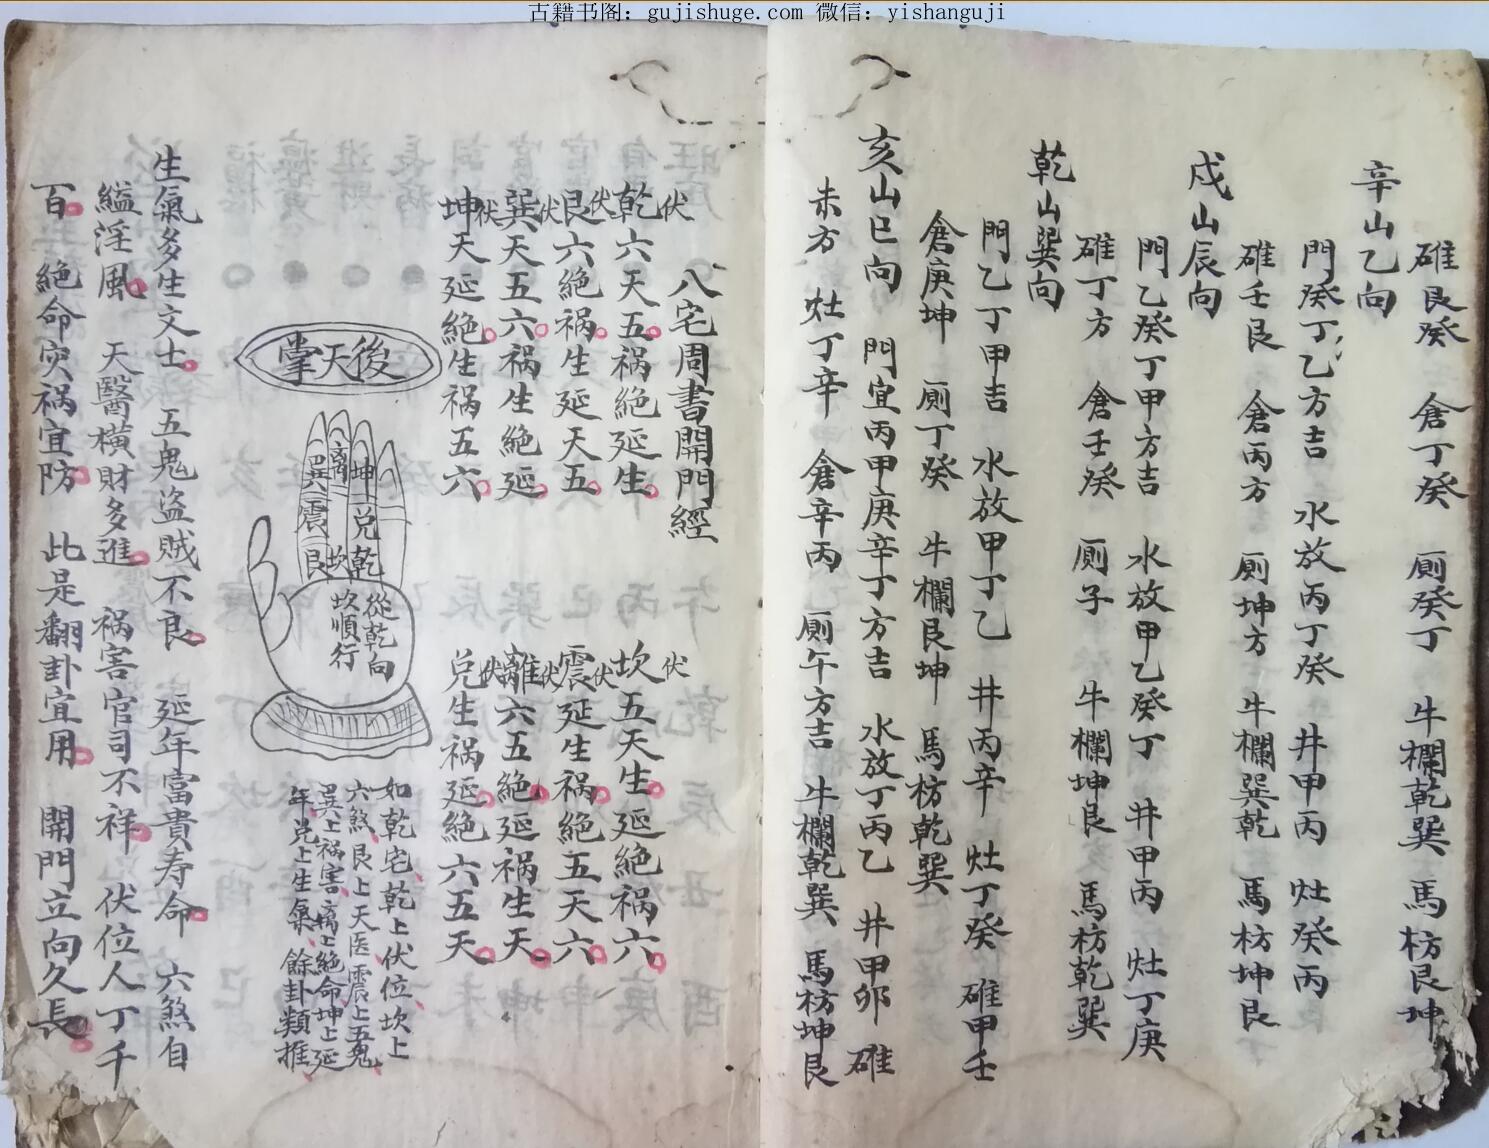 古籍书阁：gujishuge.com 微信：yishanguji
碓艮癸 倉丁癸 厕癸丁 牛欄乾巽 馬枋艮坤
辛山乙向
門癸丁乙方吉 水放丙丁癸 井甲丙 灶癸丙
碓壬艮 倉丙方 厕坤方 牛欄巽乾 馬枋坤艮
戍山辰向
門乙癸丁甲方吉 水放甲乙癸丁 井甲丙 灶丁庚
碓丁方 倉壬癸 厕子 牛欄坤艮 馬枋乾巽
乾山巽向
門乙丁甲吉 水放甲丁乙 井丙辛 灶丁癸 碓甲壬
倉庚坤 厕丁癸 牛欄艮坤 馬枋乾巽
亥山巳向 門宜丙甲庚辛丁方吉 水放丁丙乙 井甲卯 碓
未方 灶丁辛 倉辛丙 厕午方吉 牛欄乾巽 馬枋坤艮
八宅周書開門經
伏
乾六天五祸絶延生
伏
坎五天生延絶祸六
伏
艮六絶祸生延天五
伏
震延生祸絶五天六
伏
巽天五六祸生絶延
伏
離六五絶延祸生天
伏
坤天延絶生祸五六
伏
兑生祸延絶六五天
後天掌
坤兑乾
離坎
巽震艮
從乾向
坎順行
如乾宅乾上伏位坎上
六煞艮上天医震上五鬼
巽上祸害离上絶命坤上延
年兑上生氣餘卦類推
生氣多生文士 五鬼盗贼不良 延年富貴寿命 六煞自
縊淫風 天醫横財多進 祸害官司不祥 伏位人丁千
百 絶命灾祸宜防 此是翻卦宜用 開門立向久長